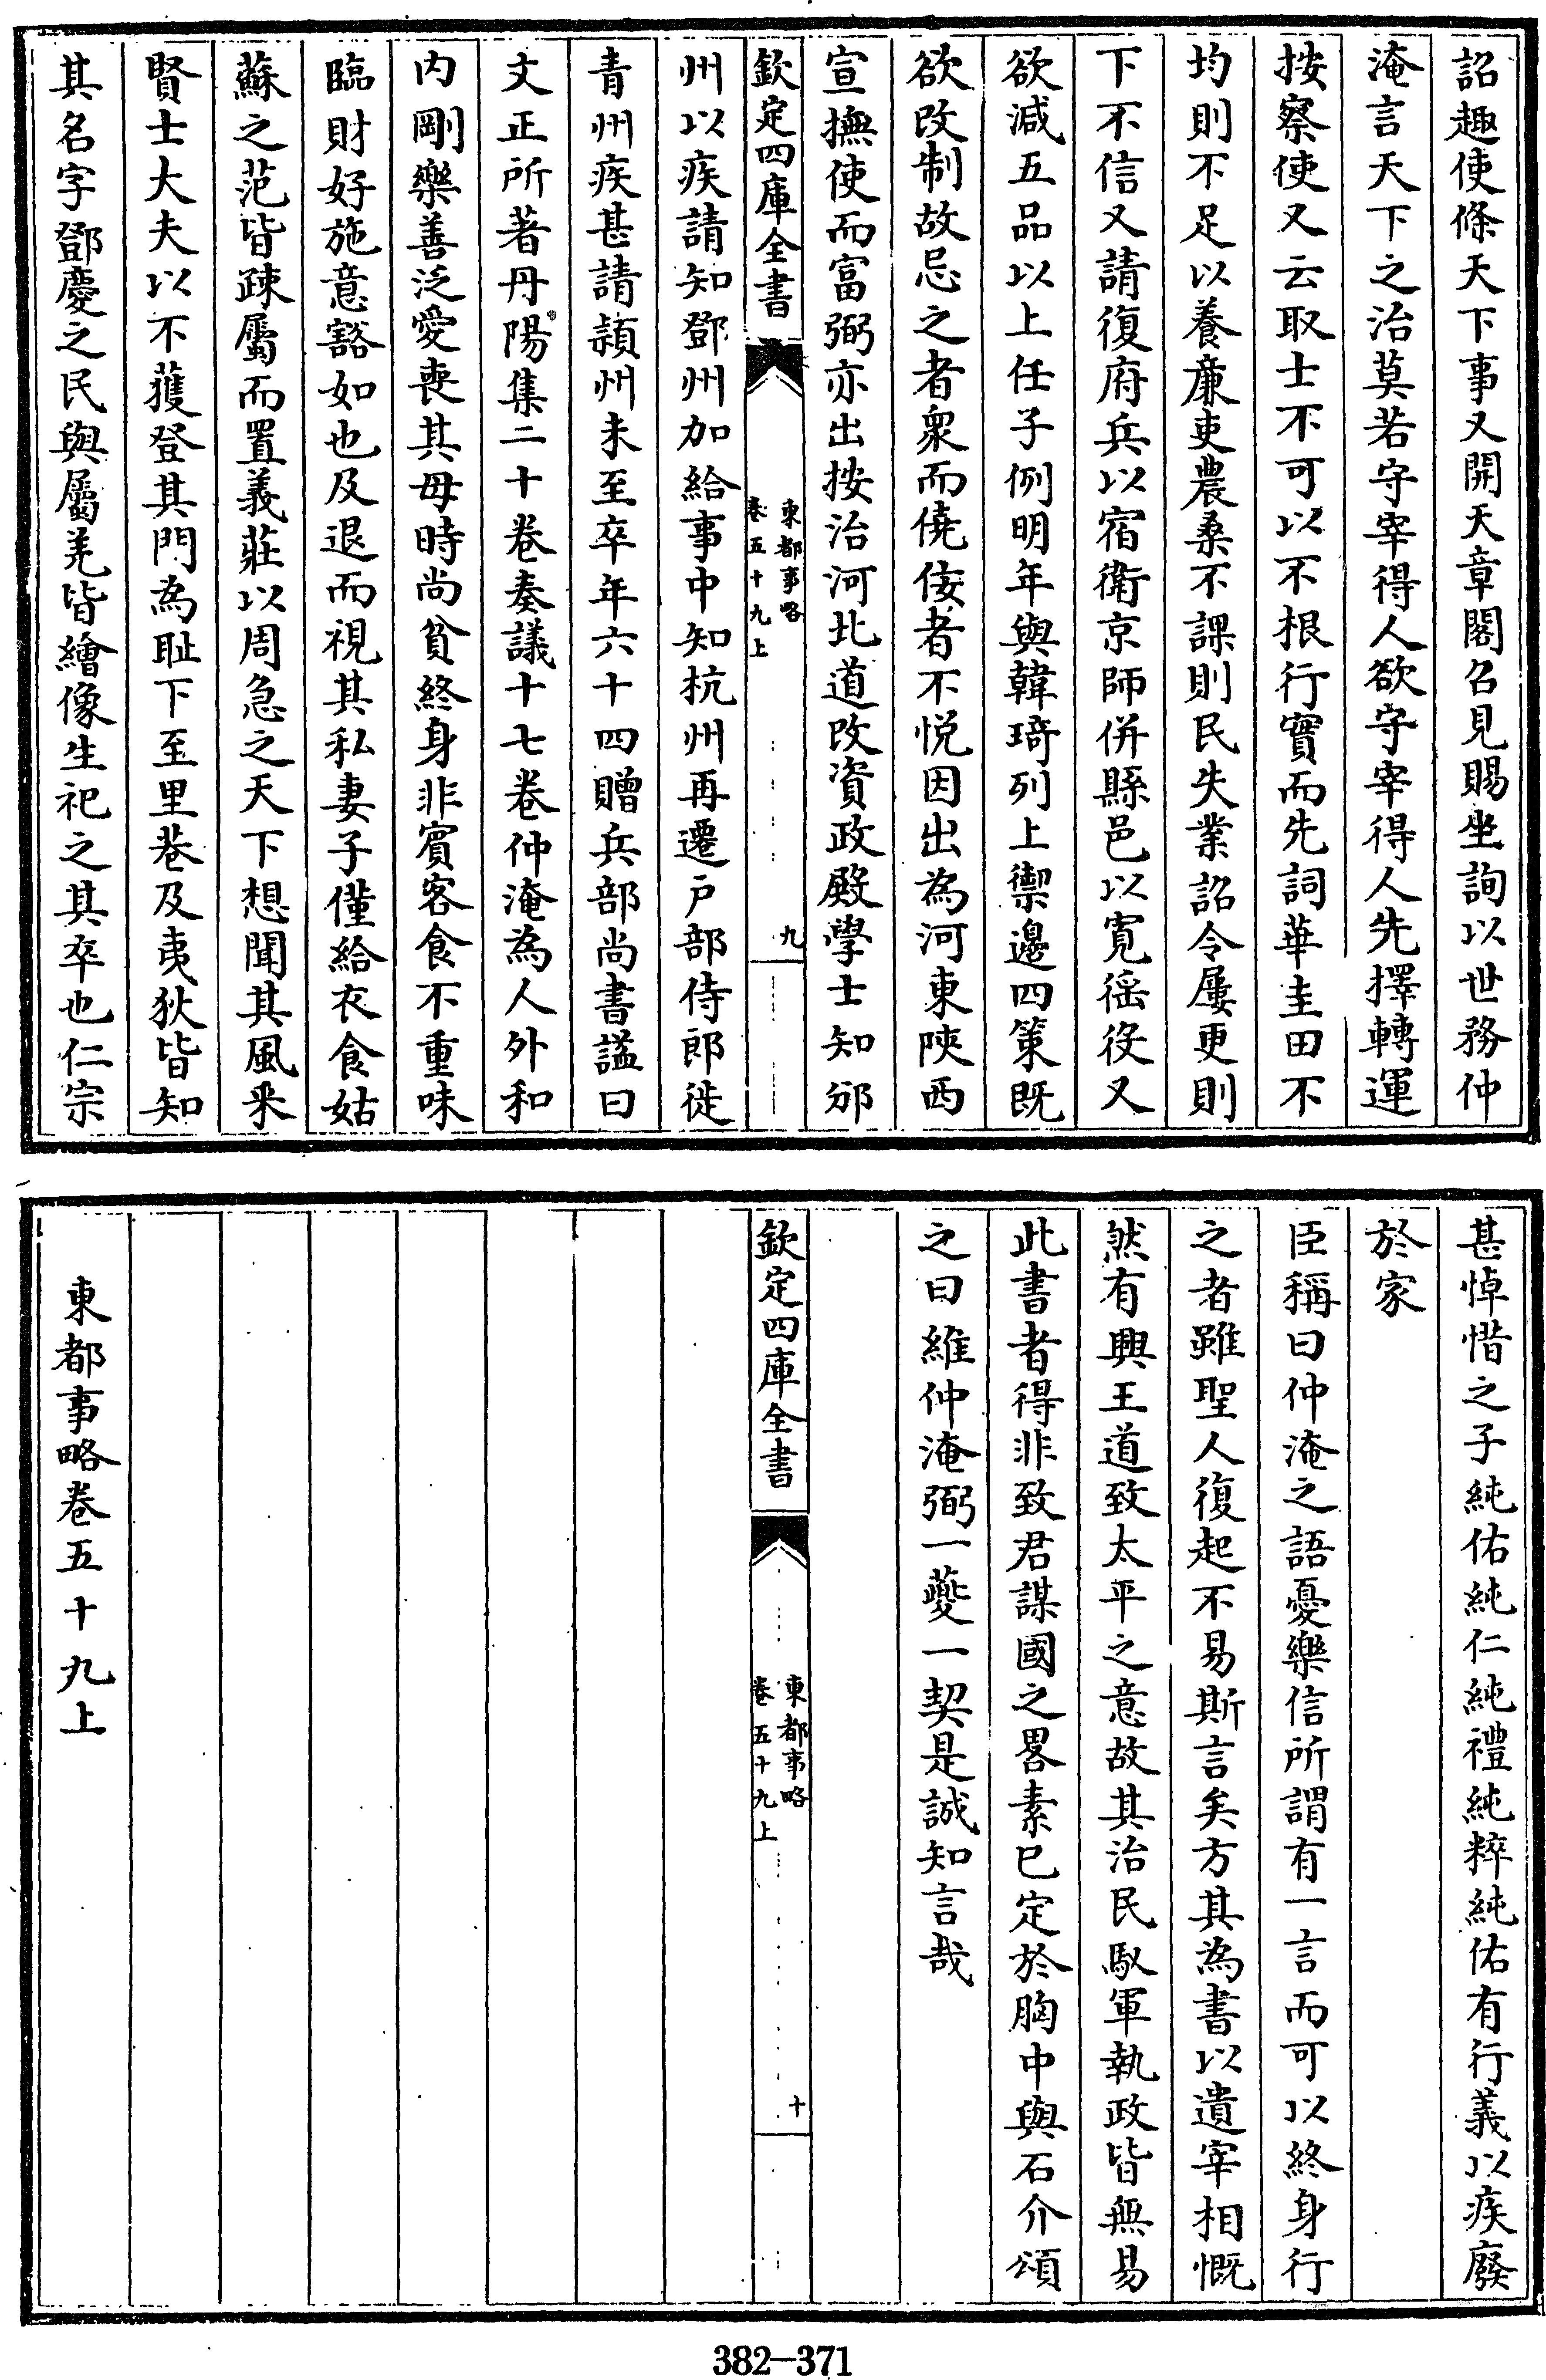 詔趣使條天下事又開天章閣召見賜坐詢以世務仲
淹言天下之治莫若守宰得人欲守宰得人先擇轉運
按察使又云取士不可以不根行實而先詞華圭田不
均則不足以養亷吏農桑不課則民失業詔令屢更則
下不信又請復府兵以宿衛京師併縣邑以寛徭役又
欲減五品以上任子例明年與韓琦列上禦邊四策既
欲改制故忌之者衆而僥倖者不悦因出為河東陜西
宣撫使而富弼亦出按治河北道改資政殿學士知邠
欽定四庫全書
東都事略
卷五十九上
九
州以疾請知鄧州加給事中知杭州再遷戸部侍郎徙
青州疾甚請潁州未至卒年六十四贈兵部尚書諡曰
文正所著丹陽集二十卷奏議十七卷仲淹為人外和
内剛樂善泛愛喪其母時尚貧終身非賓客食不重味
臨財好施意豁如也及退而視其私妻子僅給衣食姑
蘇之范皆疎屬而置義莊以周急之天下想聞其風采
賢士大夫以不獲登其門為耻下至里巷及夷狄皆知
其名字鄧慶之民與屬羌皆繪像生祀之其卒也仁宗
甚悼惜之子純佑純仁純禮純粹純佑有行義以疾廢
於家
臣稱曰仲淹之語憂樂信所謂有一言而可以終身行
之者雖聖人復起不易斯言矣方其為書以遺宰相慨
然有興王道致太平之意故其治民馭軍執政皆無易
此書者得非致君謀國之畧素已定於胸中與石介頌
之曰維仲淹弼一夔一契是誠知言哉
欽定四庫全書
東都事略
卷五十九上
十
東都事略卷五十九上
382-371